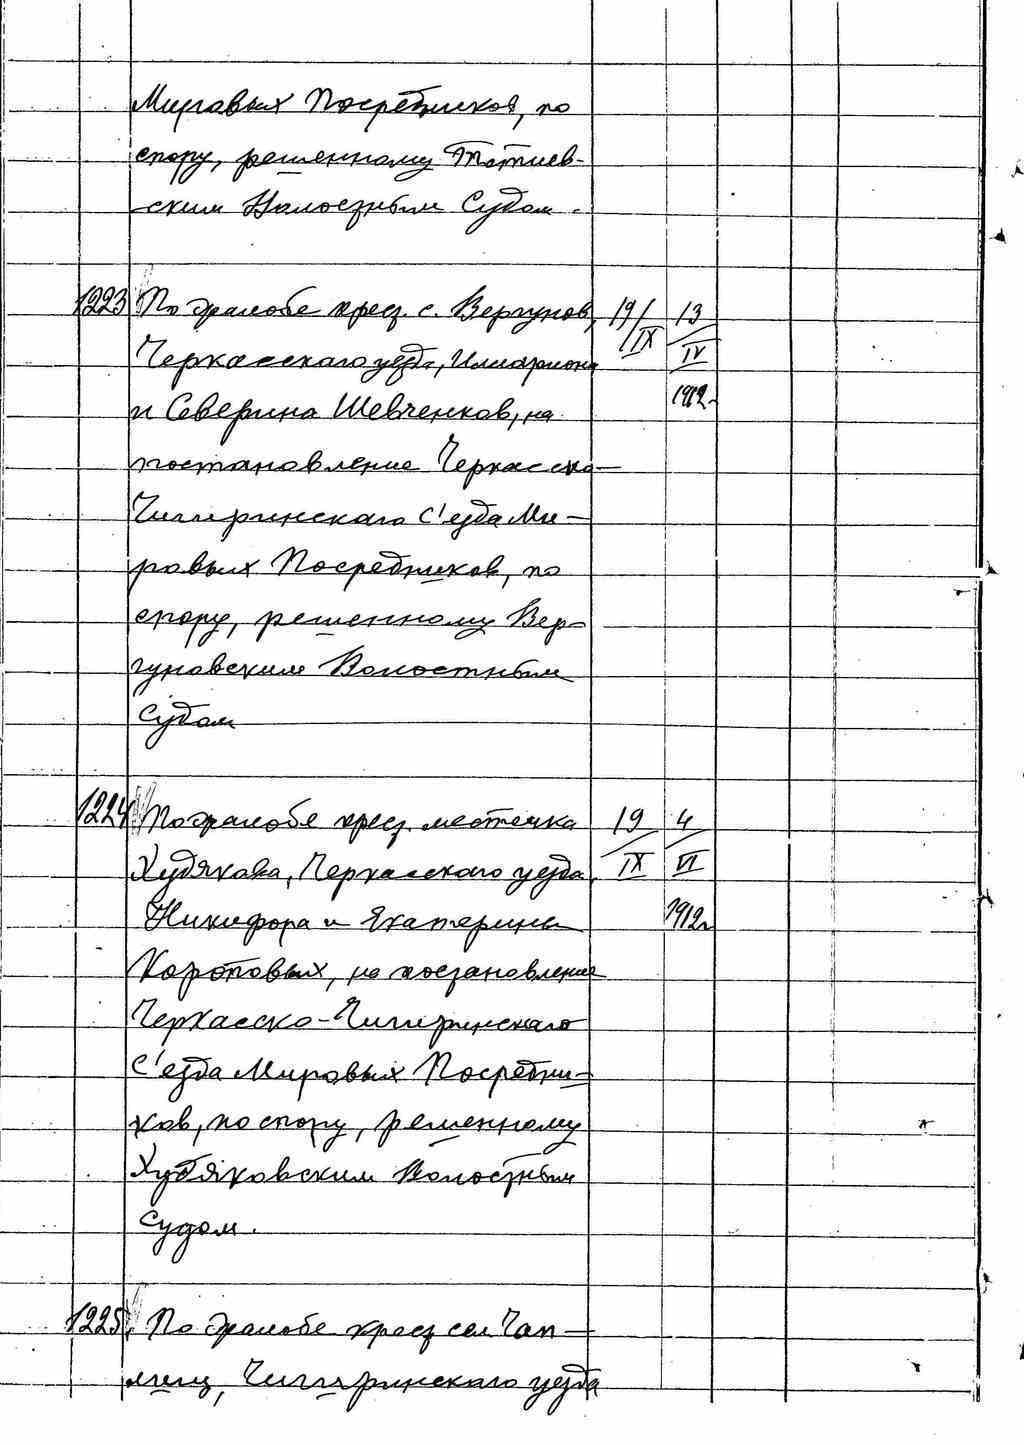 Мировых Посредников, по
спору, решенному Тотиев-
ским Волостным Судом.
1223 По жалобе крест. с. Вергунов, 19/IX 13/IV
Черкасскаго уезда, Иллариона
и Северина Шевченков, на 1912 г.
постановление Черкасско-
Чигиринскаго С'езда Ми-
ровых Посредников, по
спору, решенному Вер-
гуновским Волостным
Судом
1224 По жалобе крест. местечка 19/IX 4/VI
Худякова, Черкасскаго уезда,
Никифора и Екатерины 1912 г.
Коротовых, на постановление
Черкасско-Чигиринскаго
С'езда Мировых Посредни-
ков, по спору, решенному
Худяковским Волостным
Судом.
1225. По жалобе крест. сел. Чап-
лищ, Чигиринскаго уезда